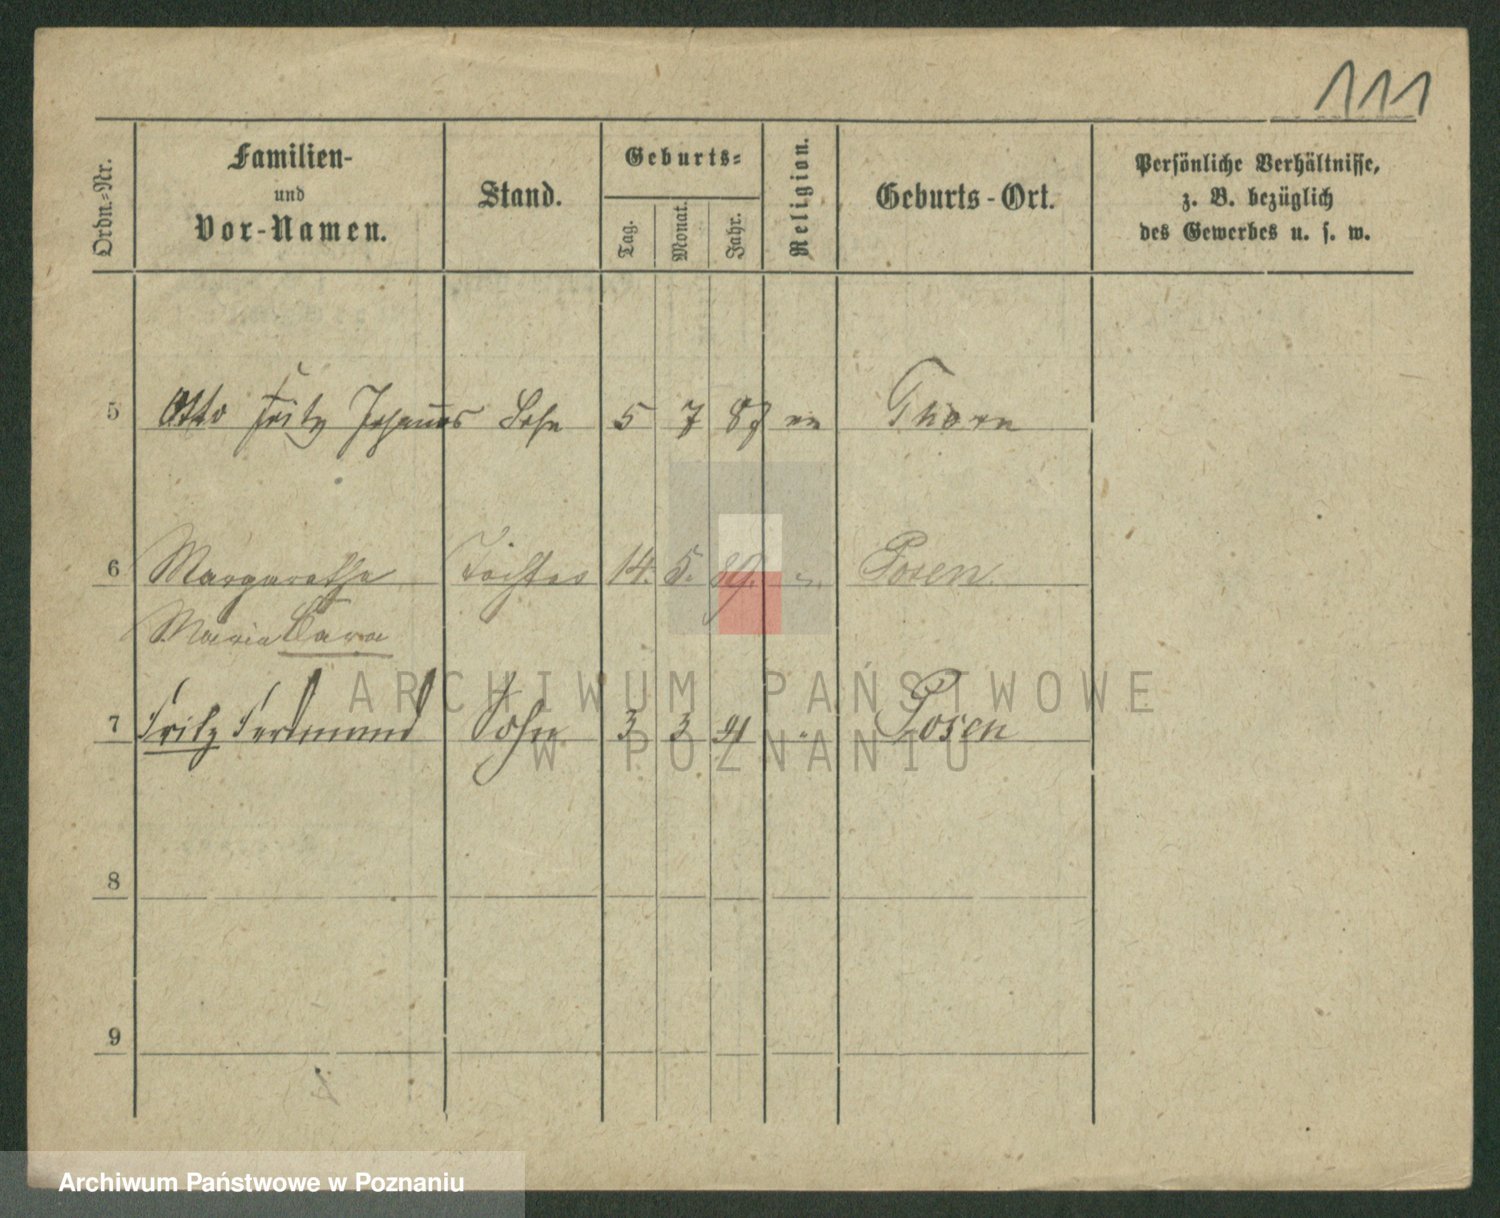 111
Ordn.-Nr.
Familien-
und
Vor-Namen.
Stand.
Geburts-
Tag.
Monat.
Jahr.
Religion.
Geburts-Ort.
Persönliche Verhältnisse,
z. B. bezüglich
des Gewerbes u. s. w.
5 Otto Fritz Johannes Sohn 5 7 87 Thorn
6 Margarethe Tochter 14. 5. 89. Posen.
Maria Clara
7 Fritz Ferdinand Sohn 3 3 91 Posen
8
9
ARCHIWUM PAŃSTWOWE
W POZNANIU
Archiwum Państwowe w Poznaniu